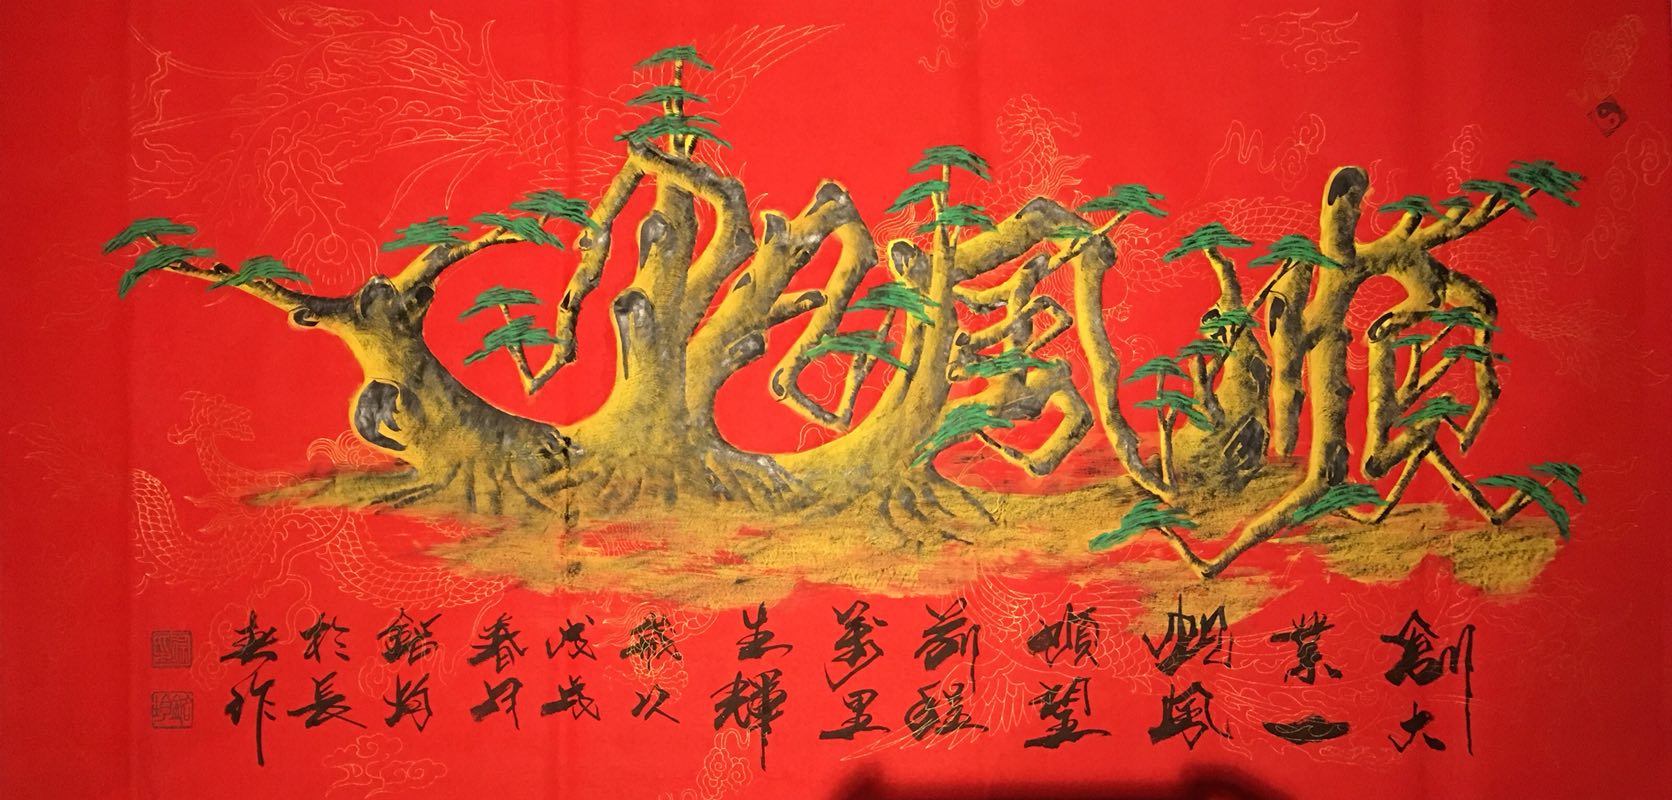 一帆風順
創大
業一
帆風
順望
前程
萬里
生輝
歲次
戊戌
春月
均
於長
春作